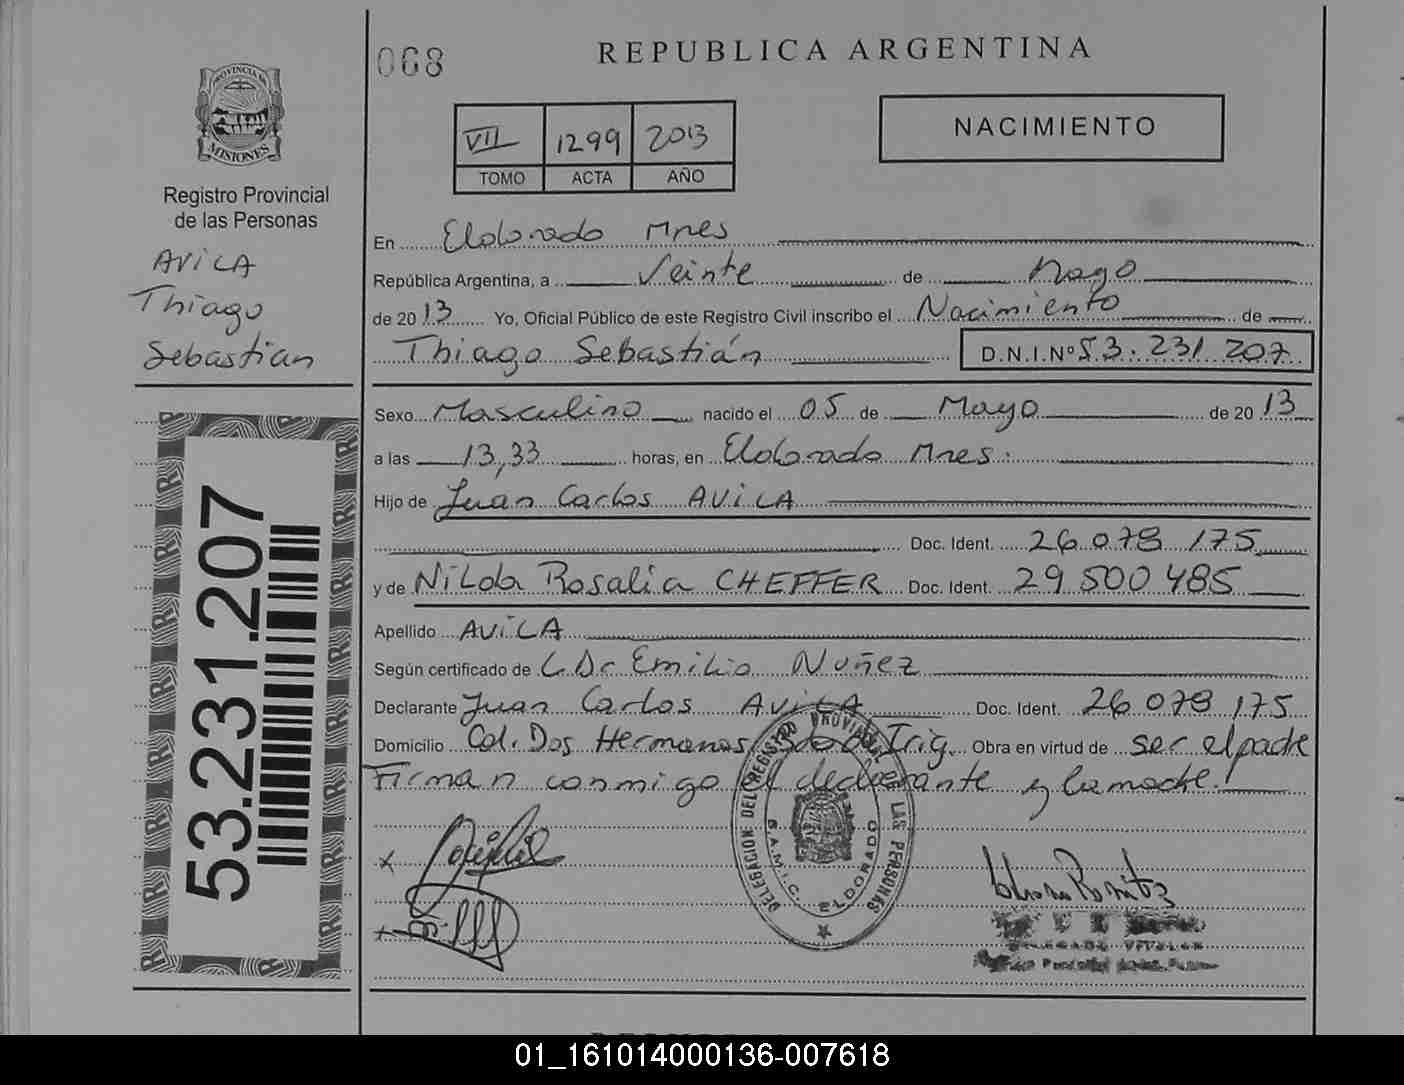 068
REPUBLICA ARGENTINA
NACIMIENTO
VII 1299 2013
TOMO ACTA AÑO
PROVINCIA DE
MISIONES
Registro Provincial
de las Personas
AVILA
Thiago
Sebastian
53.231.207
En Eldorado Mnes
República Argentina, a Veinte de Mayo
de 2013 Yo, Oficial Público de este Registro Civil inscribo el Nacimiento de
Thiago Sebastián D.N.I.Nº 53.231.207
Sexo Masculino nacido el 05 de Mayo de 2013
a las 13,33 horas, en Eldorado Mnes.
Hijo de Juan Carlos AVILA
Doc. Ident. 26.078.175
y de Nilda Rosalia CHEFFER Doc. Ident. 29.500.485
Apellido AVILA
Según certificado de L. Dr Emilio Nuñez
Declarante Juan Carlos AVILA Doc. Ident. 26.078.175
Domicilio Col. Dos Hermanas Irig. Obra en virtud de ser el padre
Firman conmigo el declarante y la madre.
DELEGACION DEL REGISTRO PROVINCIAL DE LAS PERSONAS
S.A.M.I.C. ELDORADO
01_161014000136-007618